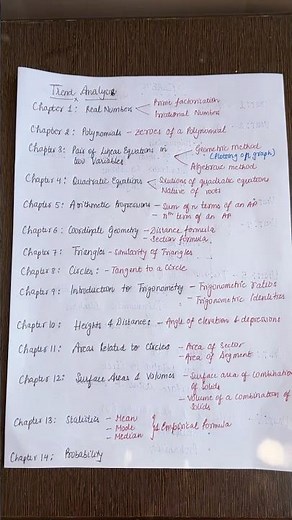 Trend Analysis
Chapter 1: Real Numbers
Prime factorisation
Irrational Numbers
Chapter 2: Polynomials - zeroes of a Polynomial
Chapter 3: Pair of Linear Equations in two Variables
Geometric method
(Plotting of graph)
Algebraic method
Chapter 4: Quadratic Equations
Solutions of quadratic equations
Nature of roots
Chapter 5: Arithmetic Progressions - Sum of n terms of an AP
- nth term of an AP
Chapter 6: Coordinate Geometry - Distance formula
- Section formula
Chapter 7: Triangles - Similarity of Triangles
Chapter 8: Circles: - Tangent to a Circle
Chapter 9: Introduction to Trigonometry - Trigonometric Ratios
- Trigonometric Identities
Chapter 10: Heights & Distances - Angle of elevations & depressions
Chapter 11: Areas Related to Circles - Area of Sector
- Area of Segment
Chapter 12: Surface Areas & Volumes - Surface area of combination of solids
- Volume of a combination of solids
Chapter 13: Statistics - Mean
- Mode
- Median
& Empirical formula
Chapter 14: Probability